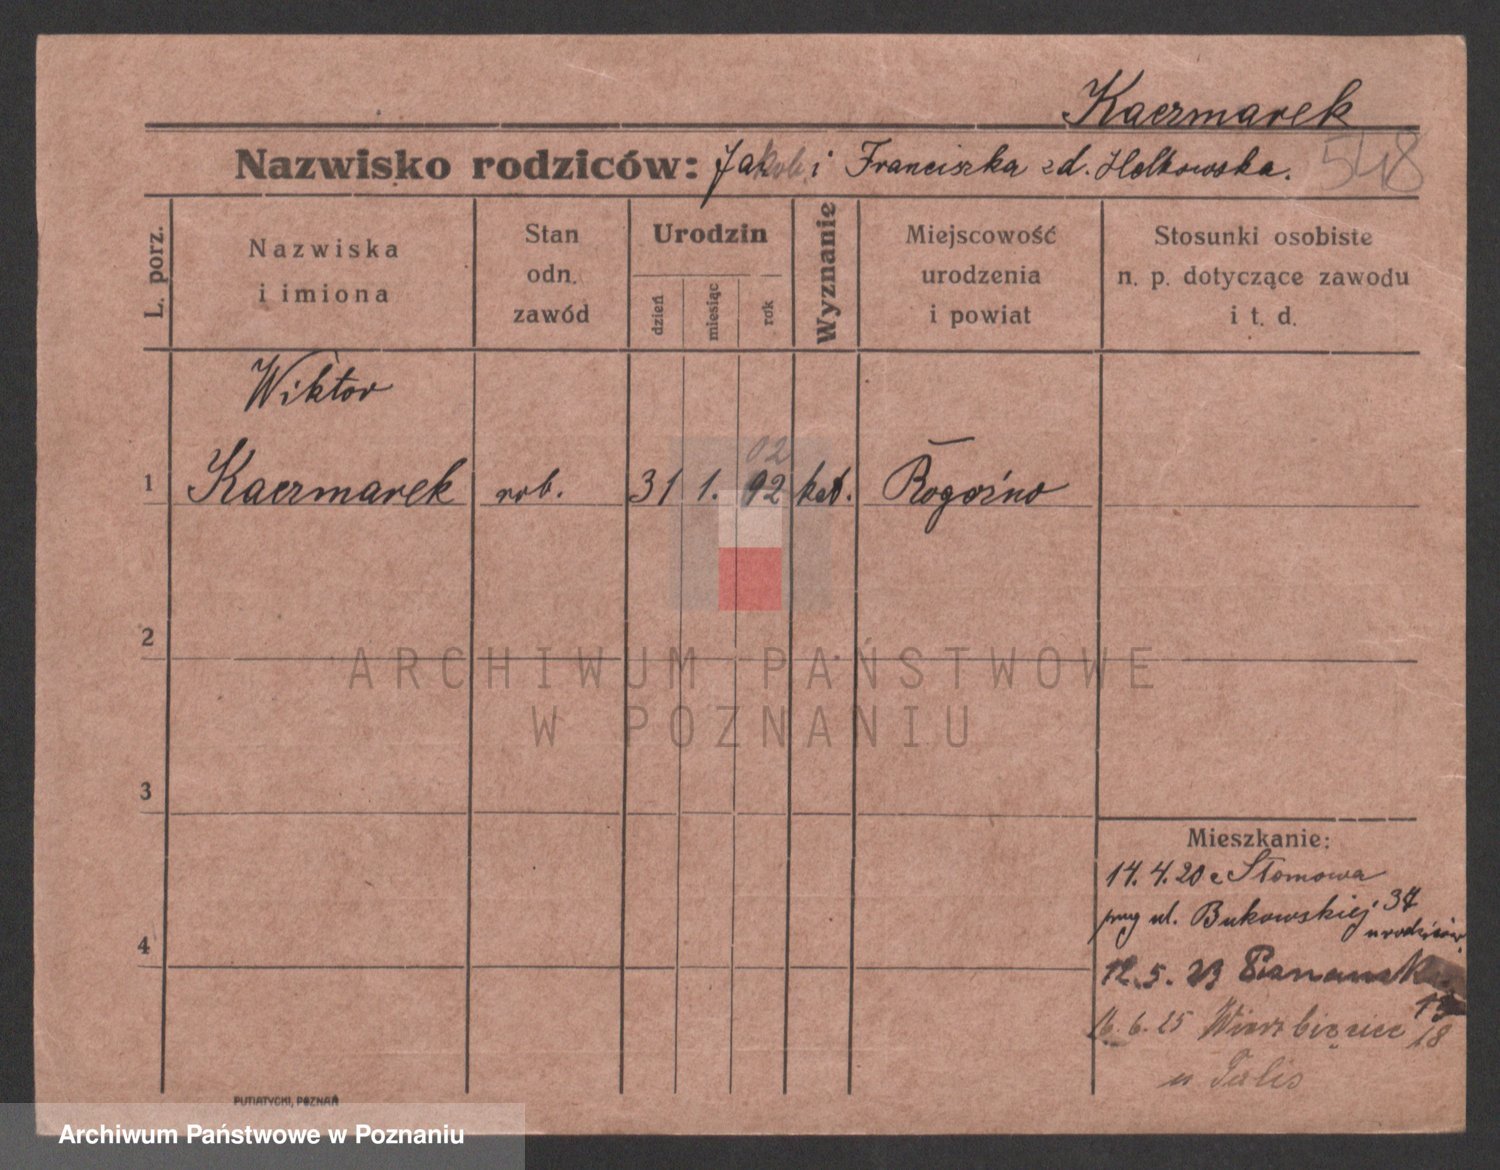 Kaczmarek
Nazwisko rodziców: Jakob i Franciszka zd. Helkowska.
548
L. porz.
Nazwiska
i imiona
Stan
odn.
zawód
Urodzin
dzień
miesiąc
rok
Wyznanie
Miejscowość
urodzenia
i powiat
Stosunki osobiste
n. p. dotyczące zawodu
i t. d.
Wiktor
02
1 Kaczmarek rob. 31 1. 92 kat. Rogoźno
2
ARCHIWUM PAŃSTWOWE
W POZNANIU
3
Mieszkanie:
14. 4. 20 z Słomowa
przy ul. Bukowskiej 37
u rodziców
4
12. 5. 23
13
16. 6. 25 Wierzbięcice 18
u
PUTIATYCKI, POZNAŃ
Archiwum Państwowe w Poznaniu